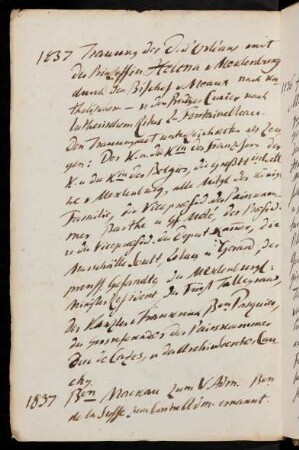 1837 Trauung des D. d'Orléans mit
der Prinzessin Helena v Meklenburg
durch den Bischof v Meaux nach
katholischem – u den Prediger Cuvier nach
lutherischem Ritus zu Fontainebleau.
Den Trauungsact unterzeichneten als Zeugen:
Der K u die Kin der Franzosen der
K u die Kin der Belgier, die
v Meklenburg, alle Mitgl der Königl
Familie, die Vicepräsid der Pairskammer
Barthe u Gf Molé, der Präsid
u die Vicepräsid der Deput Kammer, die
Marschälle Soult Lobau u Gerard, der
preuß Gesandte der Meklenburg.
Ministerresident der Fürst Talleyrand,
der Kanzler v Frankreich Bon Pasquier,
der der Pairskammer
Duc de Cazes, u der
1837 Bon Mackau zum V. Adm. Bon
de la Susse zum Contre Adm. ernannt.